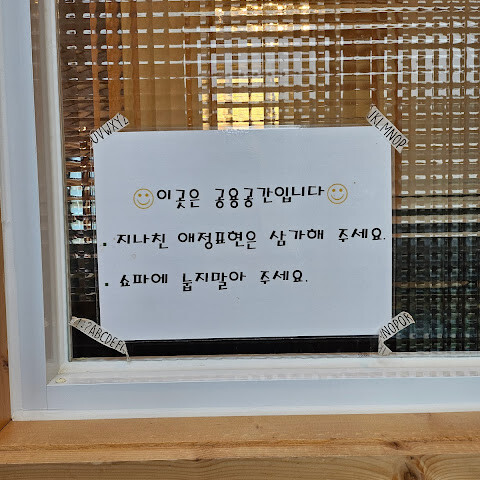 UVWXYZ
JKLMNOP
이곳은 공용공간입니다
. 지나친 애정표현은 삼가해 주세요.
. 쇼파에 눕지말아 주세요.
?ABCDEF
NOPQR